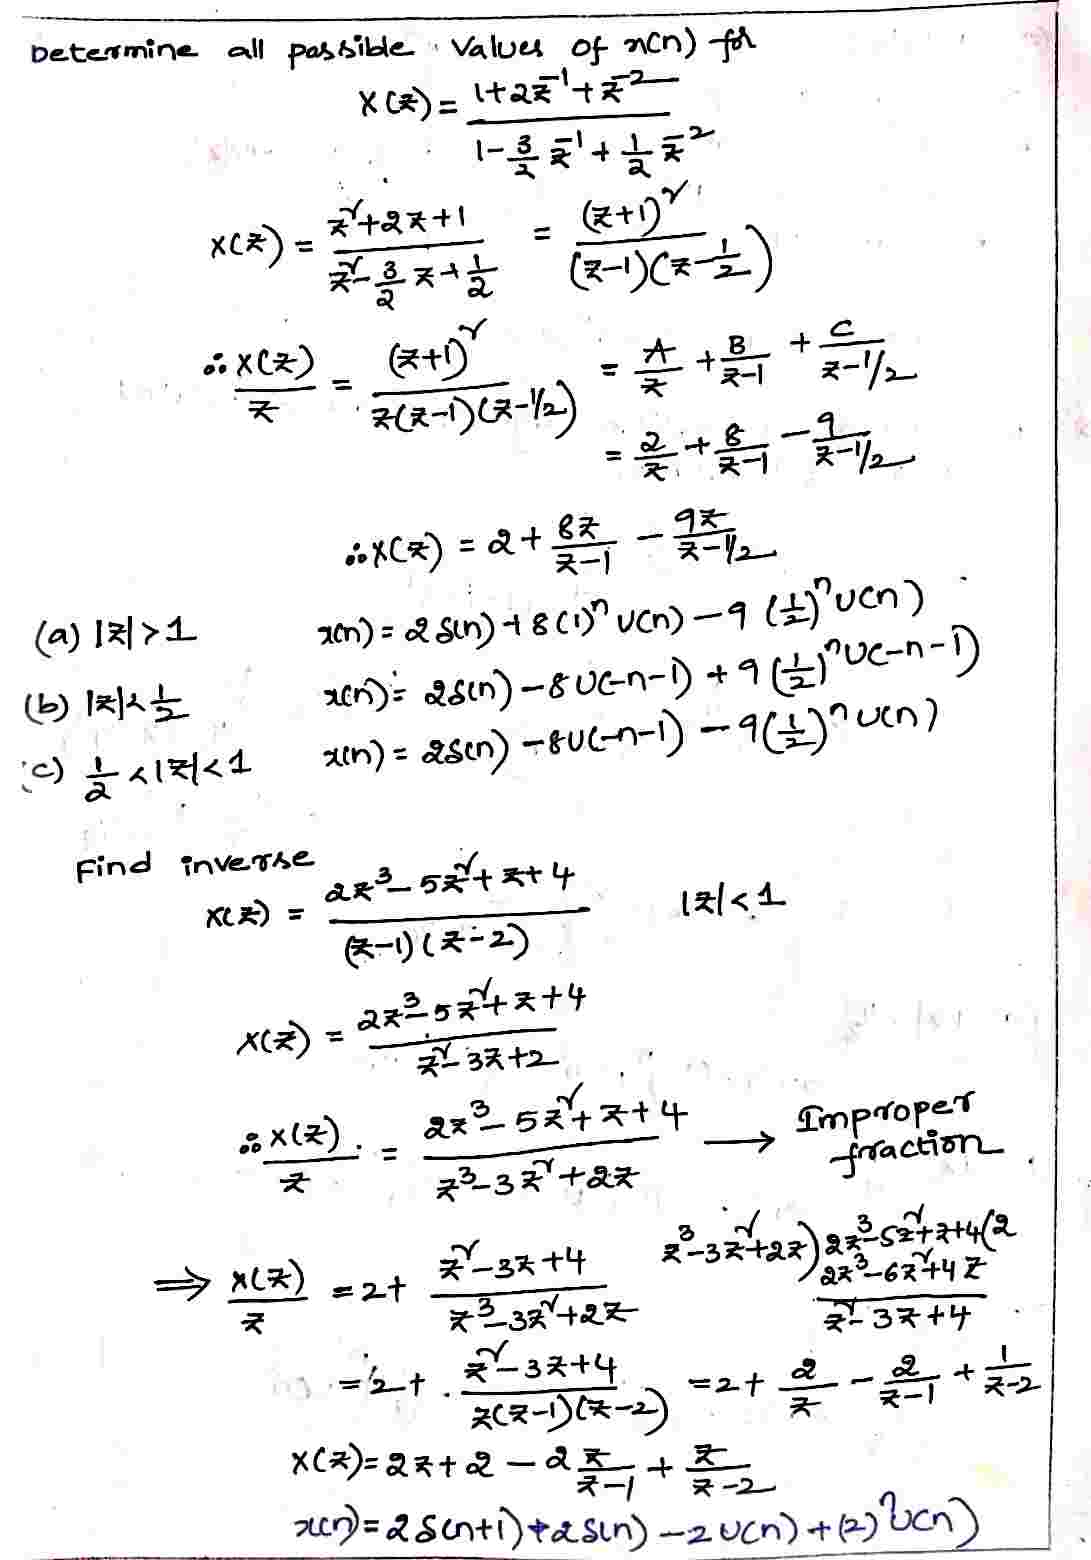 Determine all possible values of x(n) for
X(z) = (1+2z⁻¹+z⁻²)/(1-3/2 z⁻¹+1/2 z⁻²)
X(z) = (z²+2z+1)/(z²-3/2 z+1/2) = (z+1)²/((z-1)(z-1/2))
∴ X(z)/z = (z+1)²/(z(z-1)(z-1/2)) = A/z + B/(z-1) + C/(z-1/2)
= 2/z + 8/(z-1) - 9/(z-1/2)
∴ X(z) = 2 + 8z/(z-1) - 9z/(z-1/2)
(a) |z|>1 x(n) = 2δ(n) + 8(1)ⁿ u(n) - 9 (1/2)ⁿ u(n)
(b) |z|<1/2 x(n) = 2δ(n) - 8 u(-n-1) + 9 (1/2)ⁿ u(-n-1)
(c) 1/2 < |z| < 1 x(n) = 2δ(n) - 8u(-n-1) - 9(1/2)ⁿ u(n)
Find inverse
X(z) = (2z³-5z²+z+4)/((z-1)(z-2)) |z|<1
X(z) = (2z³-5z²+z+4)/(z²-3z+2)
∴ X(z)/z = (2z³-5z²+z+4)/(z³-3z²+2z) → Improper fraction
⇒ X(z)/z = 2 + (z²-3z+4)/(z³-3z²+2z) z³-3z²+2z) 2z³-5z²+z+4 (2
2z³-6z²+4z
z²-3z+4
= 2 + (z²-3z+4)/(z(z-1)(z-2)) = 2 + 2/z - 2/(z-1) + 1/(z-2)
X(z) = 2z + 2 - 2 z/(z-1) + z/(z-2)
x(n) = 2δ(n+1) + 2δ(n) - 2u(n) + (2)ⁿ u(n)